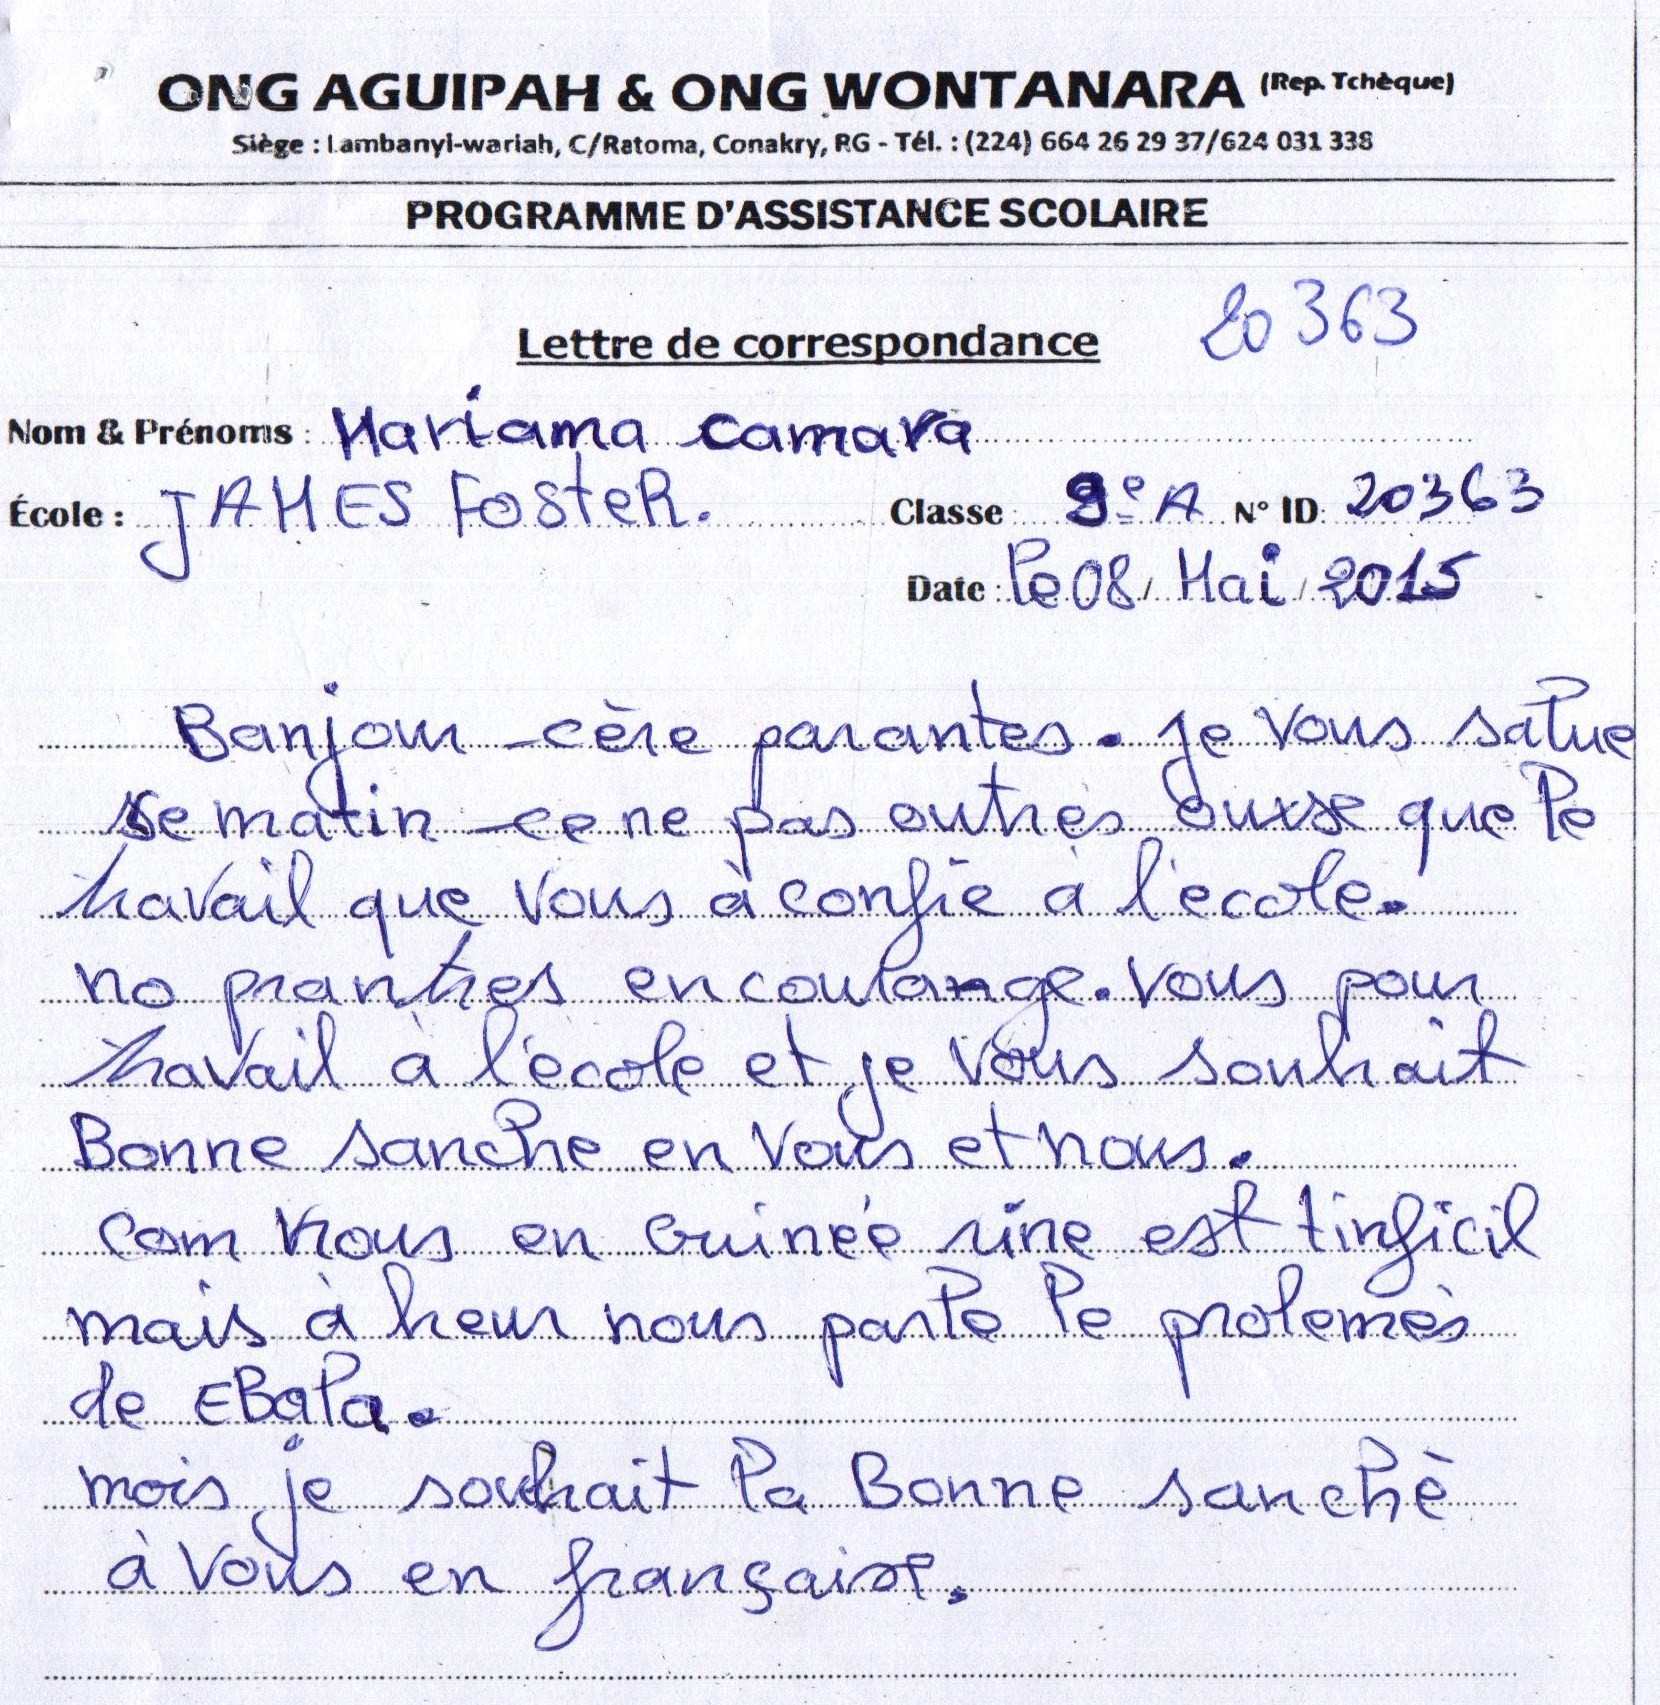 ONG AGUIPAH & ONG WONTANARA (Rep. Tchèque)
Siège : Lambanyi-wariah, C/Ratoma, Conakry, RG - Tél. : (224) 664 26 29 37/624 031 338
PROGRAMME D'ASSISTANCE SCOLAIRE
20363
Lettre de correspondance
Nom & Prénoms : Mariama camara
École : JAMES FosteR.
Classe : 9e A N° ID: 20363
Date : le 08 / Mai / 2015
Banjour cère parantes. je vous salue
se matin ce ne pas outres que le
travail que vous à confie à l'ecole.
no prantres encoulange. vous pour
travail à l'ecole et je vous souhait
Bonne sanche en vous et nous.
com nous en Guineé rine est tinficil
mais à heur nous parle le prolemes
de EBola.
mois je souhait la Bonne sanchè
à vous en française.